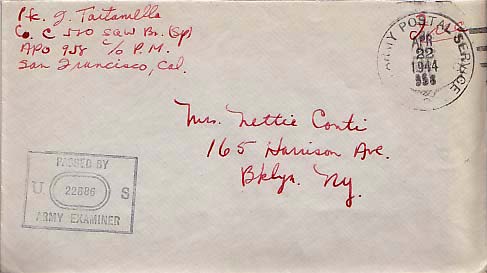 Pfc. J. Tartamella
Co. C 510 SQW Bn. (Sp)
APO 958 c/o P.M.
San Francisco, Cal.
ARMY POSTAL SERVICE
APR
22
1944
Mrs. Nettie Conti
165 Harrison Ave.
Bklyn. Ny.
PASSED BY
U 22686 S
ARMY EXAMINER